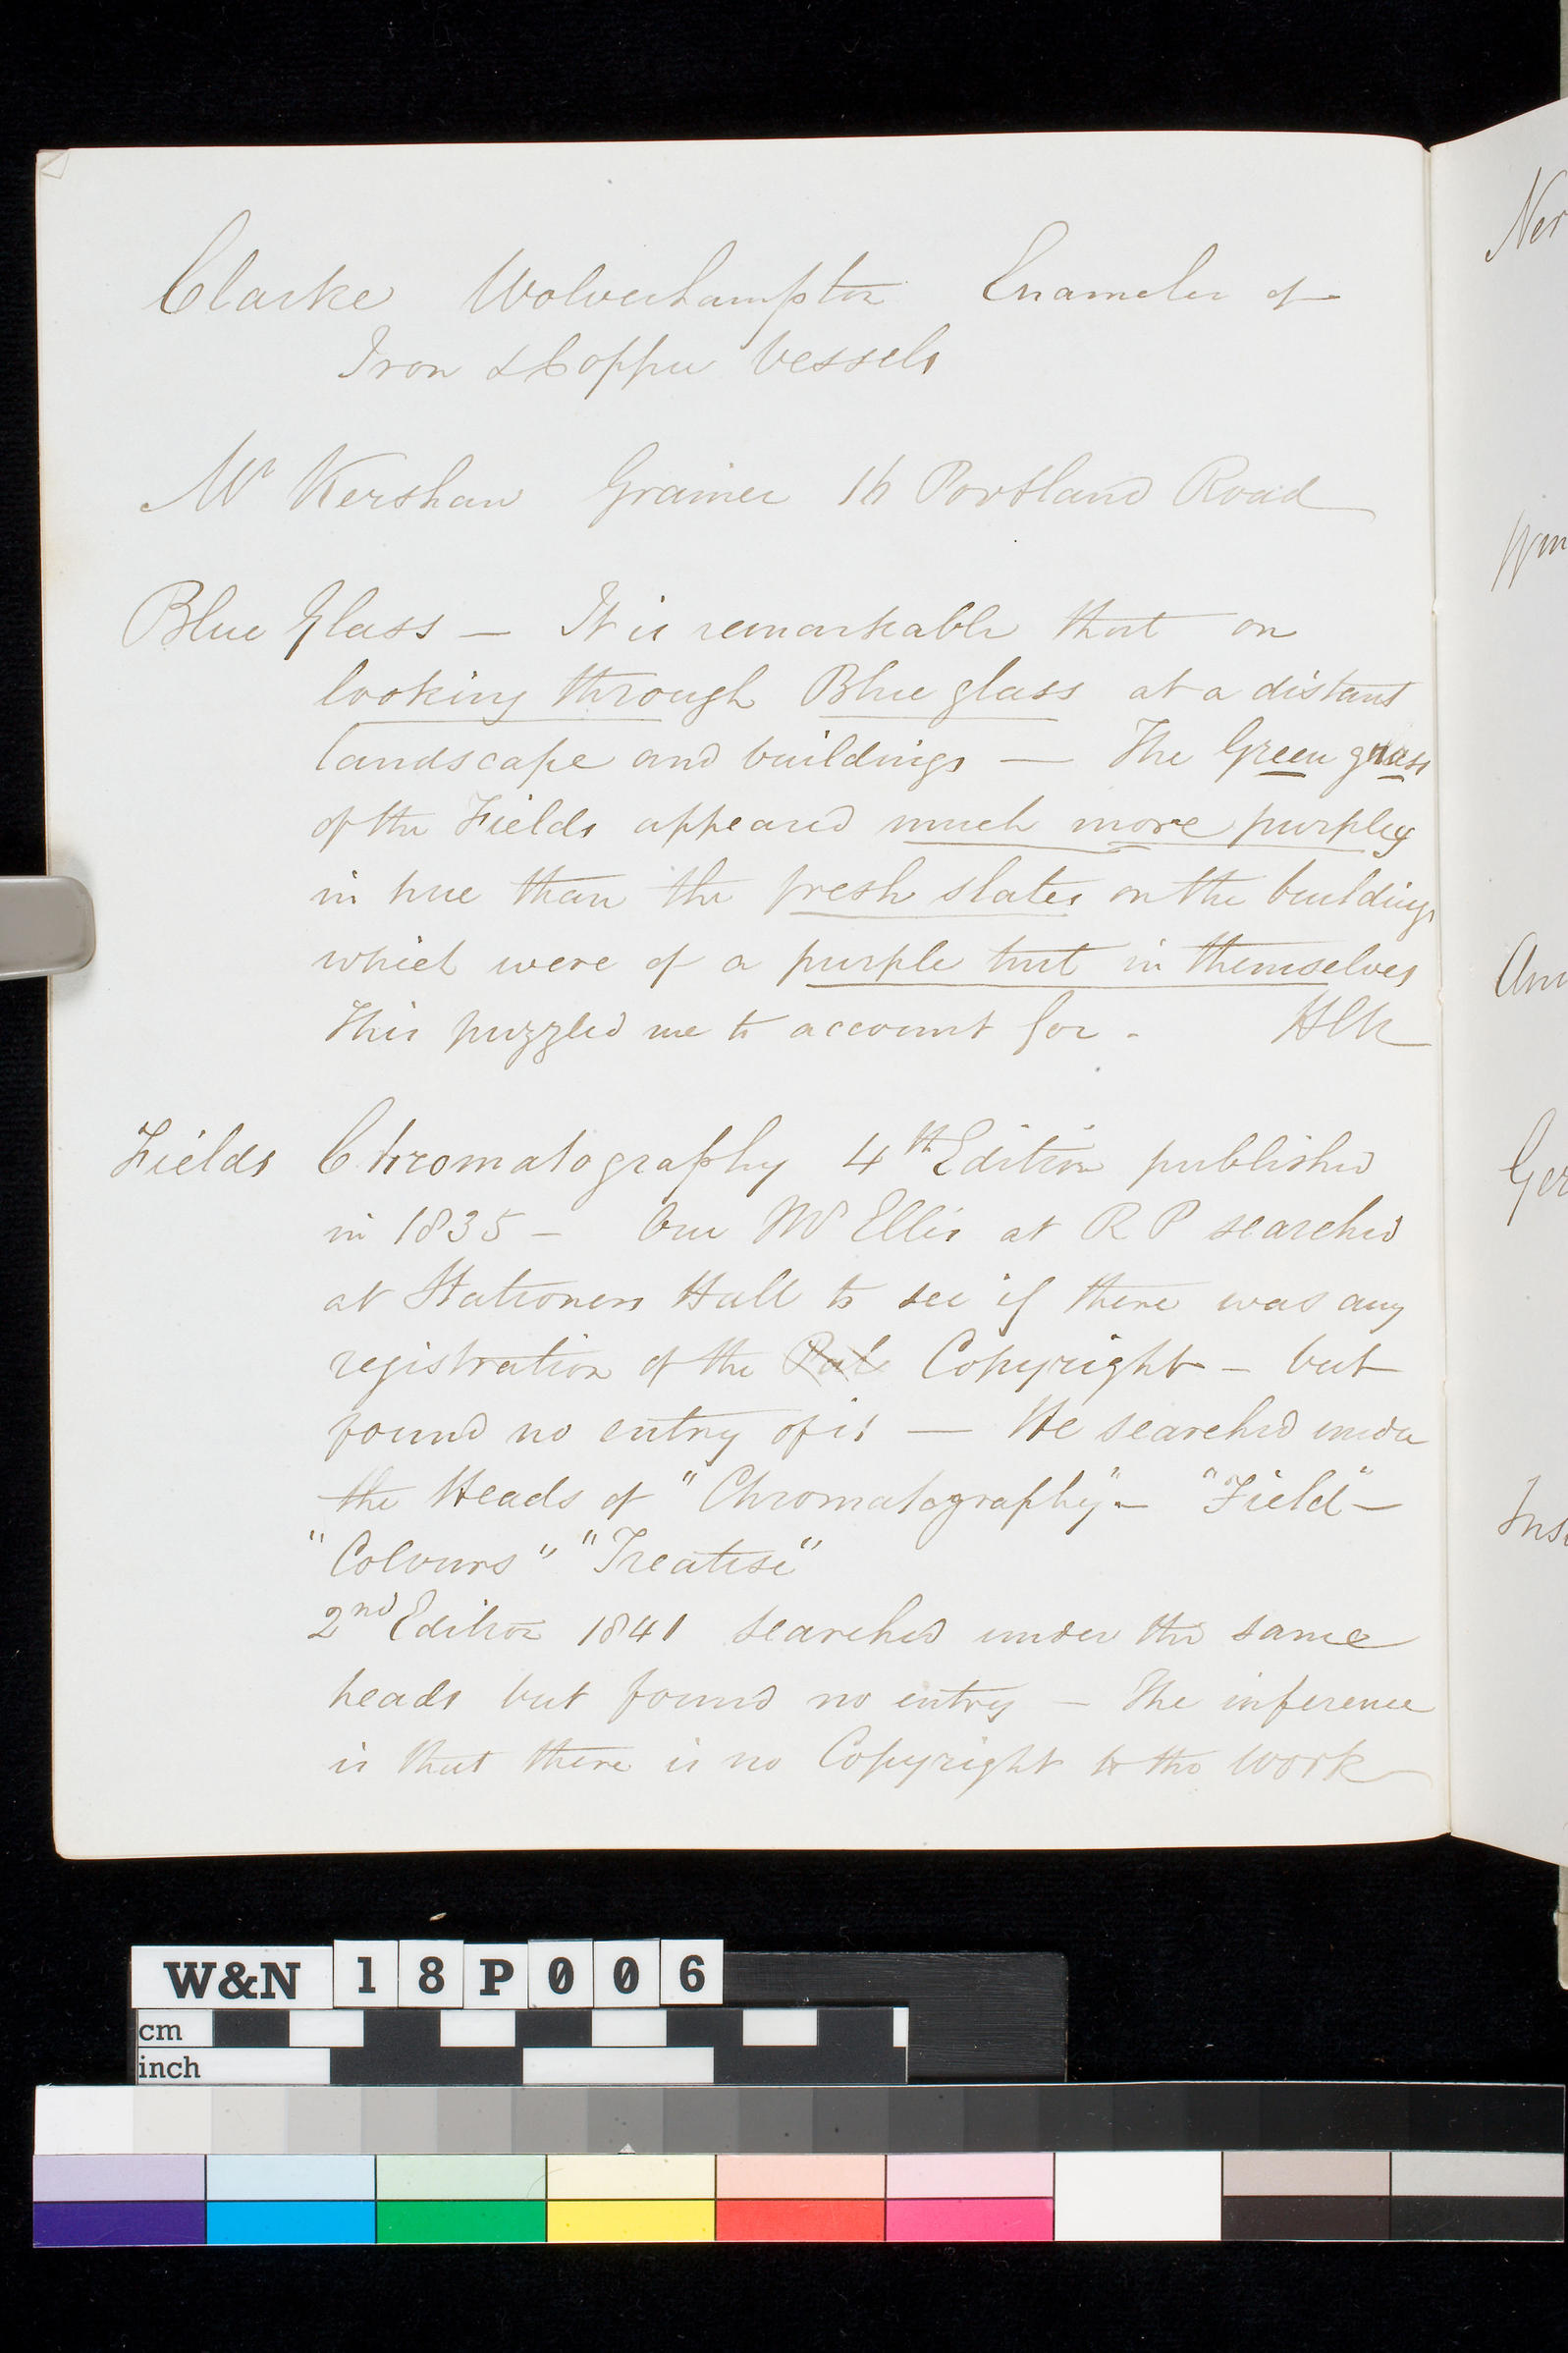 Clarke Wolverhampton Enameler of
Iron & Copper Vessels
Mr Kershaw Grainer 16 Portland Road
Blue Glass — It is remarkable that on
looking through Blue glass at a distant
landscape and buildings — The Green grass
of the Fields appeared much more purpley
in hue than the fresh slates on the buildings
which were of a purple tint in themselves
This puzzled me to account for -
Fields Chromatography 4th Edition published
in 1835 - Our Mr Ellis at R P searched
at Stationers Hall to see if there was any
registration of the Pat Copyright - but
found no entry of it — He searched under
the Heads of "Chromatography" - "Field" -
"Colours" "Treatise"
2nd Edition 1841 searched under the same
heads but found no entry - The inference
is that there is no Copyright to the Work
Ner
Wm
Ger
W&N 18P006
cm
inch